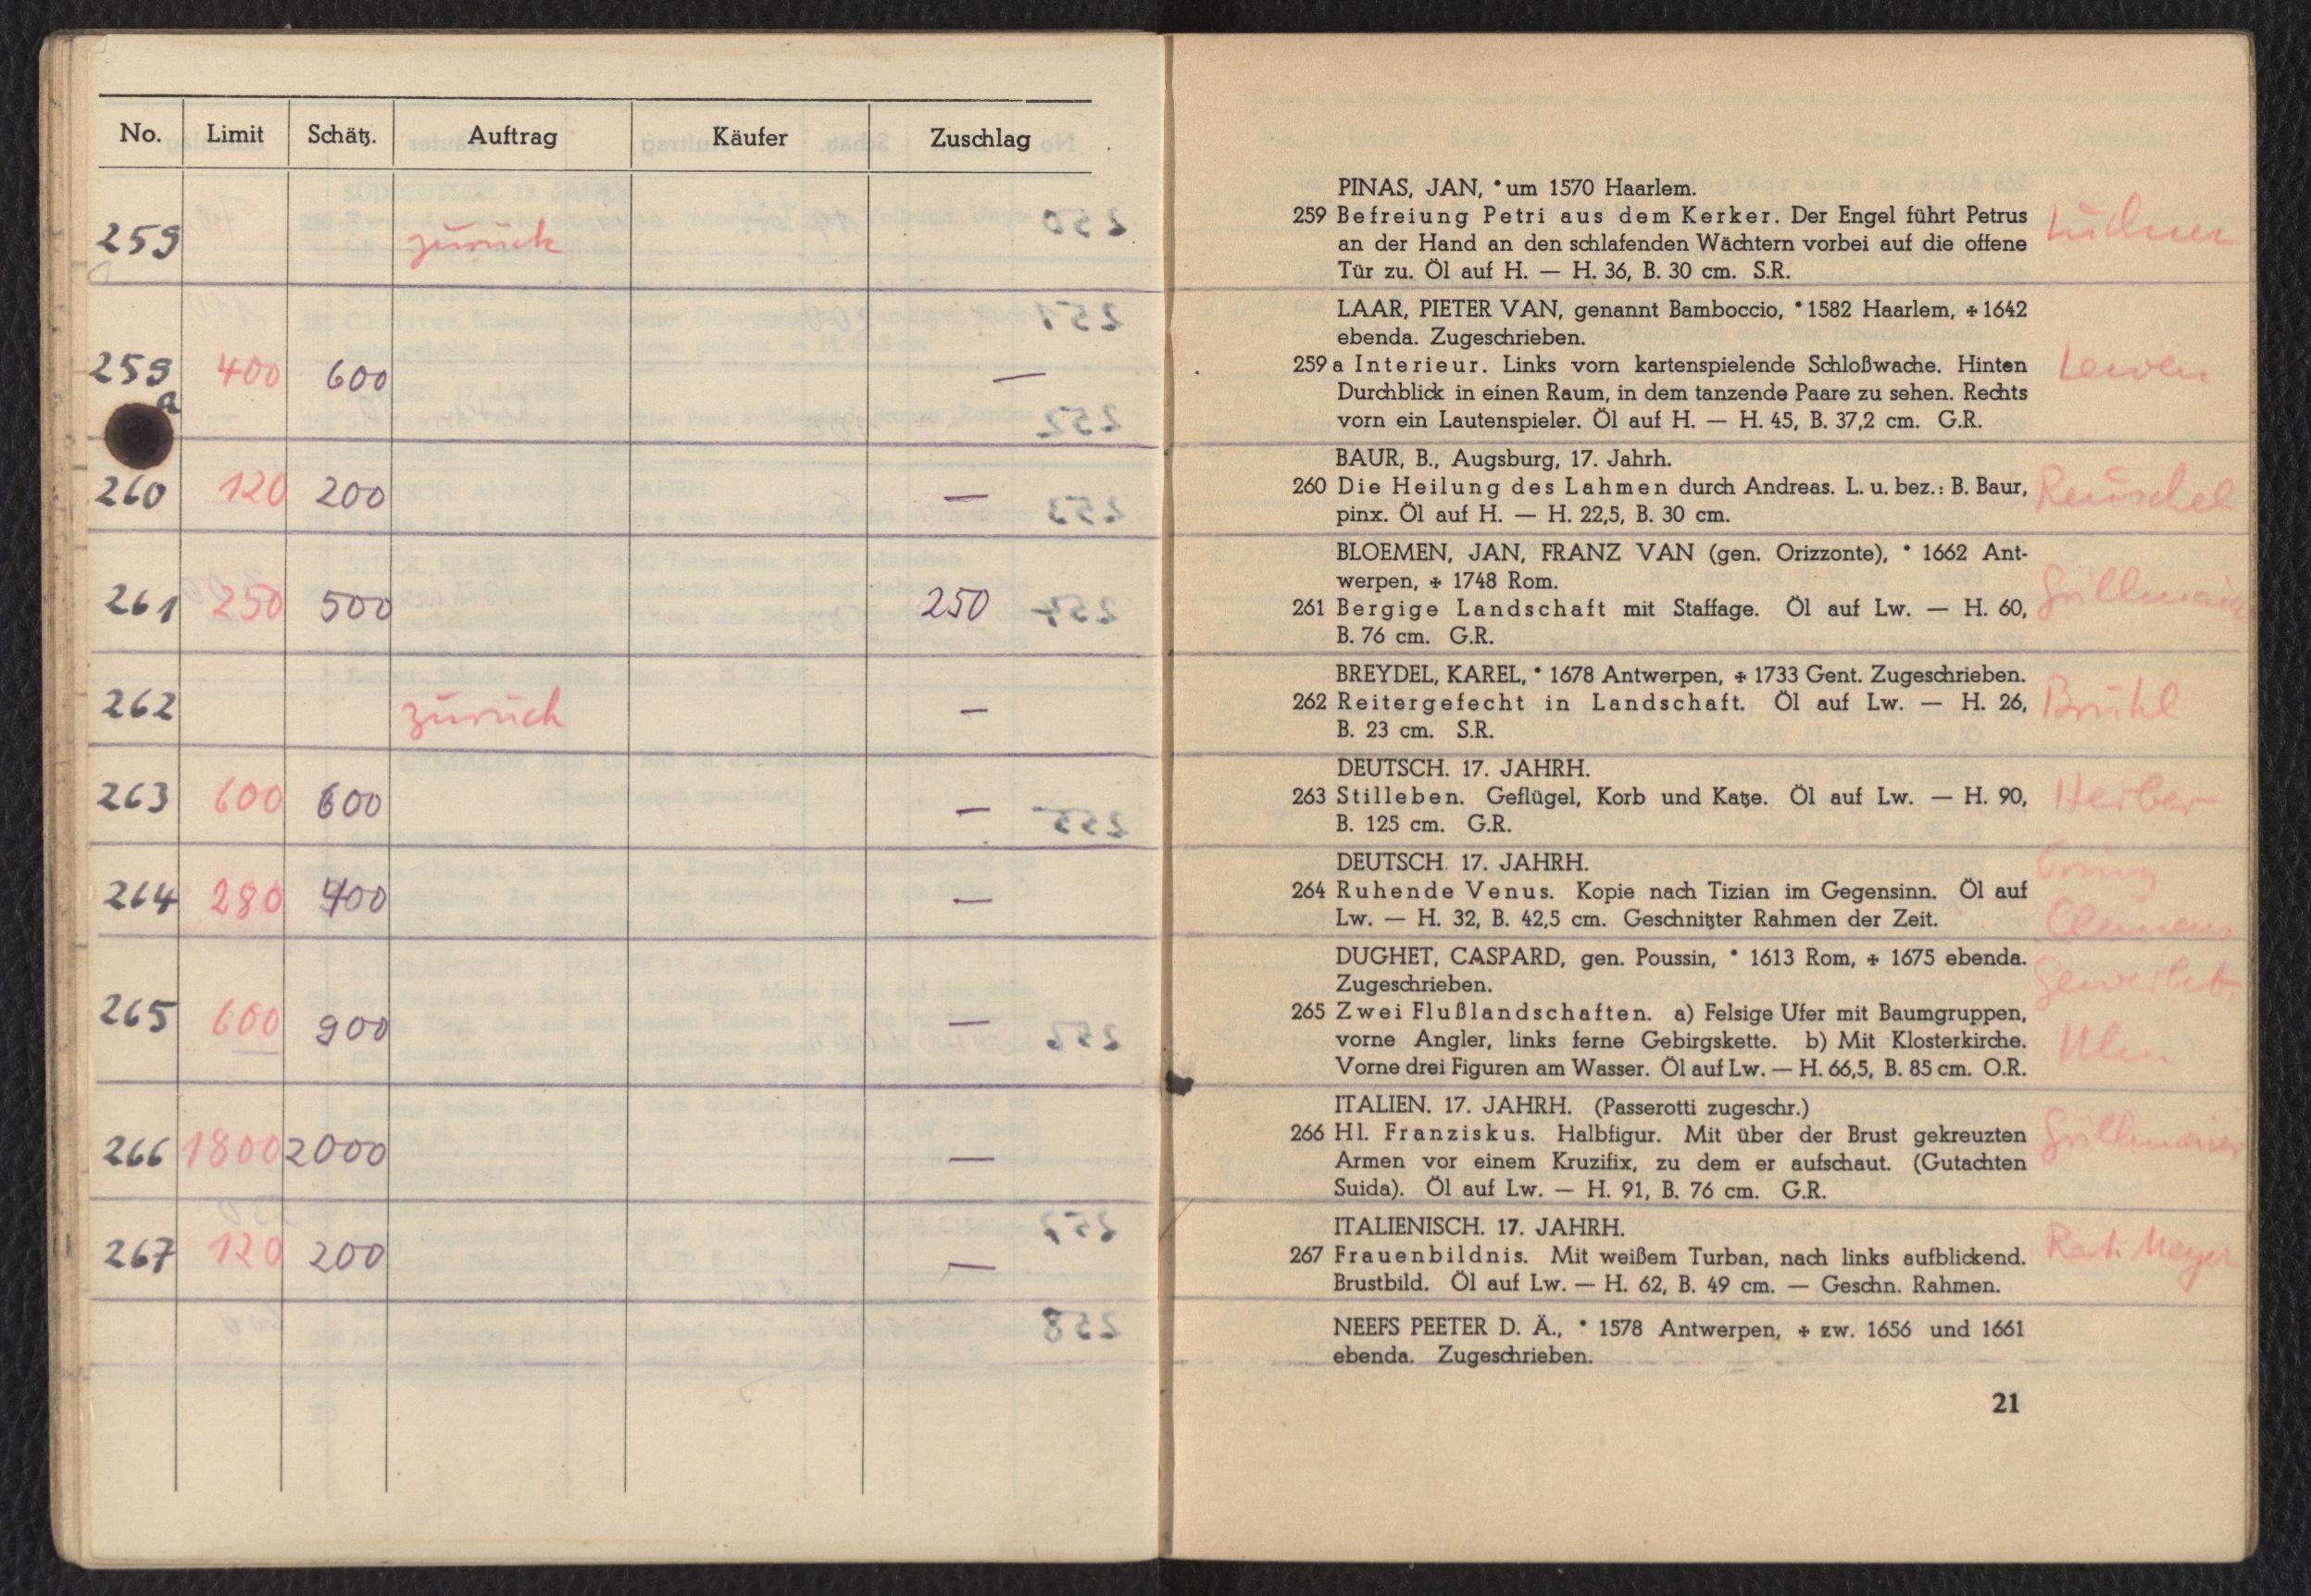 No. Limit Schätz. Auftrag Käufer Zuschlag
259 zurück
259a 400 600 —
260 120 200 —
261 250 500 250
262 zurück —
263 600 600 —
264 280 400 —
265 600 900 —
266 1800 2000 —
267 120 200 —
PINAS, JAN, * um 1570 Haarlem.
259 Befreiung Petri aus dem Kerker. Der Engel führt Petrus
an der Hand an den schlafenden Wächtern vorbei auf die offene
Tür zu. Öl auf H. — H. 36, B. 30 cm. S.R.
LAAR, PIETER VAN, genannt Bamboccio, * 1582 Haarlem, ✠ 1642
ebenda. Zugeschrieben.
259a Interieur. Links vorn kartenspielende Schloßwache. Hinten
Durchblick in einen Raum, in dem tanzende Paare zu sehen. Rechts
vorn ein Lautenspieler. Öl auf H. — H. 45, B. 37,2 cm. G.R.
BAUR, B., Augsburg, 17. Jahrh.
260 Die Heilung des Lahmen durch Andreas. L. u. bez.: B. Baur, Reuschel
pinx. Öl auf H. — H. 22,5, B. 30 cm.
BLOEMEN, JAN, FRANZ VAN (gen. Orizzonte), * 1662 Ant-
werpen, ✠ 1748 Rom.
261 Bergige Landschaft mit Staffage. Öl auf Lw. — H. 60, Grillmaier
B. 76 cm. G.R.
BREYDEL, KAREL, * 1678 Antwerpen, ✠ 1733 Gent. Zugeschrieben.
262 Reitergefecht in Landschaft. Öl auf Lw. — H. 26, Brühl
B. 23 cm. S.R.
DEUTSCH. 17. JAHRH.
263 Stilleben. Geflügel, Korb und Katze. Öl auf Lw. — H. 90, Herber
B. 125 cm. G.R.
DEUTSCH. 17. JAHRH.
264 Ruhende Venus. Kopie nach Tizian im Gegensinn. Öl auf
Lw. — H. 32, B. 42,5 cm. Geschnitzter Rahmen der Zeit. Clemens
DUGHET, CASPARD, gen. Poussin, * 1613 Rom, ✠ 1675 ebenda.
Zugeschrieben.
265 Zwei Flußlandschaften. a) Felsige Ufer mit Baumgruppen,
vorne Angler, links ferne Gebirgskette. b) Mit Klosterkirche. Ulm
Vorne drei Figuren am Wasser. Öl auf Lw. — H. 66,5, B. 85 cm. O.R.
ITALIEN. 17. JAHRH. (Passerotti zugeschr.)
266 Hl. Franziskus. Halbfigur. Mit über der Brust gekreuzten Grillmaier
Armen vor einem Kruzifix, zu dem er aufschaut. (Gutachten
Suida). Öl auf Lw. — H. 91, B. 76 cm. G.R.
ITALIENISCH. 17. JAHRH.
267 Frauenbildnis. Mit weißem Turban, nach links aufblickend. Rat. Meyer
Brustbild. Öl auf Lw. — H. 62, B. 49 cm. — Geschn. Rahmen.
NEEFS PEETER D. Ä., * 1578 Antwerpen, ✠ zw. 1656 und 1661
ebenda. Zugeschrieben.
21